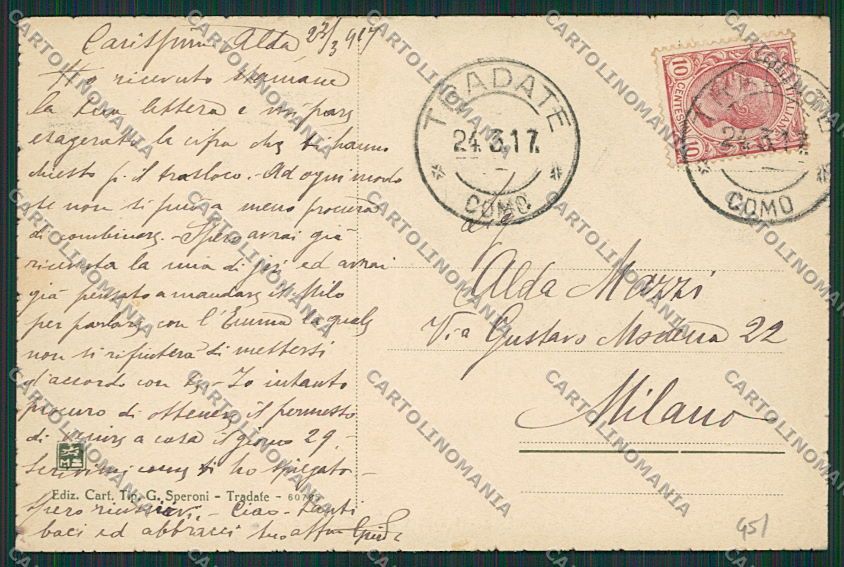 Carissima Alda 23/3 917
Ho ricevuto stamane
la tua lettera e mi pare
esagerata la cifra che ti hanno
chiesto p. il trasloco. - Ad ogni modo
se non si può a meno procura
di combinare. - Spero avrai già
ricevuta la mia di jeri ed avrai
già pensato a mandare il Milo
per parlare con l'Emma la quale
non si rifiuterà di mettersi
d'accordo con te. - Io intanto
procuro di ottenere il permesso
di venire a casa il giorno 29. -
Scrivimi come ti ho spiegato -
Spero riuscirvi. - Ciao - Tanti
baci ed abbracci tuo aff.mo
Ediz. Cart. Tip. G. Speroni - Tradate -
TRADATE
24.3.17.
COMO
10 CENTESIMI 10
POSTE ITALIANE
TRADATE
24.3.17
COMO
Alda Mazzi
Via Gustavo Modena 22
Milano
45/
CARTOLINOMANIA